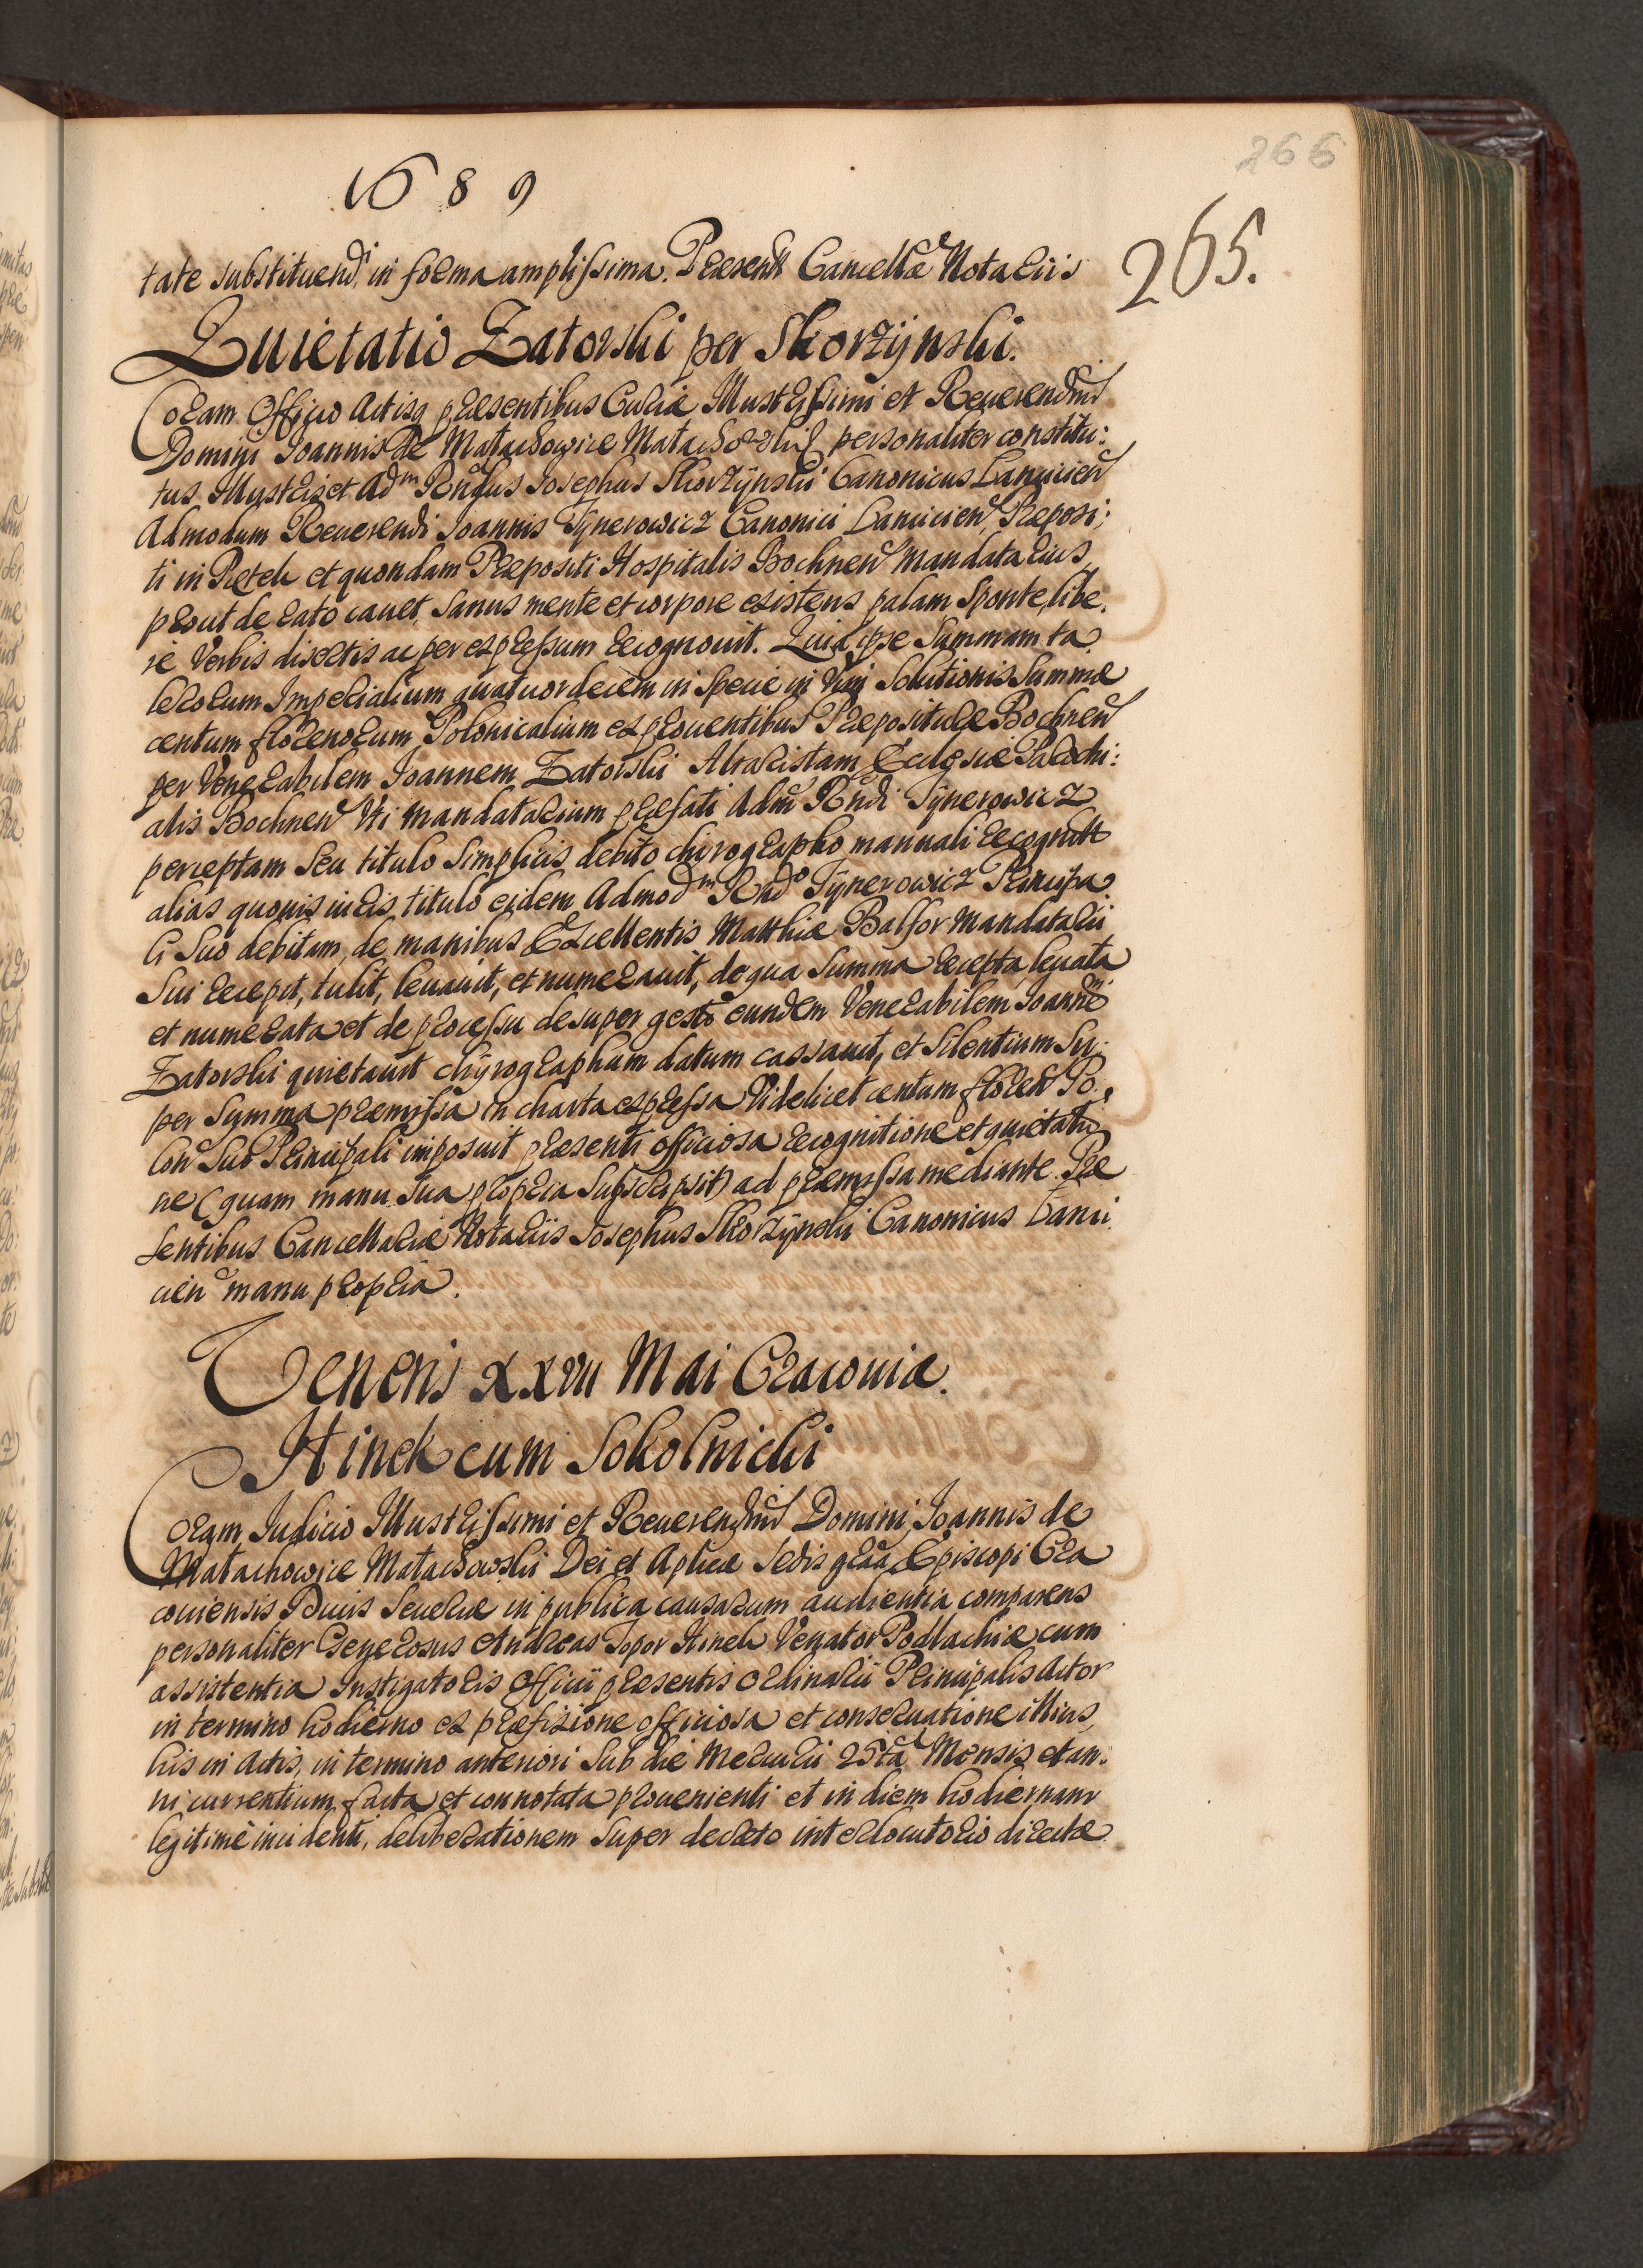 266
1689
265.
tate substituendi in forma amplissima. Praesentt Cancellae Notariis
Quietatio Zatorski per Skorzÿnski.
Coram Officio Actisq praesentibus Curiae Illustrissimi et Reuerendmi
Domini Joannis de Małachowice Małachowski personaliter constitu:
tus Illustris et Adm Rndus Josephus Skorzÿnski Canonicus Lanciciens
Admodum Reuerendi Joannis Tÿnerowicz Canonici Lancicien, Praeposi:
ti in et quondam Praepositi Hospitalis Bochnen mandatarius
prout de rato cauet, sanus mente et corpore existens palam sponte, libe.
re verbis disertis ac per expressum recognouit. Quia ipse summam ta
lerorum Imperialium quatuordecem in specie in vim solutionis summae
centum florenorum Polonicalium ex prouentibus Praepositurae Bochnen
per Venerabilem Joannem Zatorski Altaristam Ecclesiae Parochi:
alis Bochnen Uti mandatarium praefati Adm Rndi Tÿnerowicz
perceptam seu titulo simplicis debito chirographo manuali recognitt
alias quouis iuris titulo eidem Admodm Rndo Tÿnerowicz Principa
li suo debitam, de manibus Excellentis Matthiae Balfor mandatarii
sui recepit, tulit, leuauit, et numerauit, de qua summa recepta, leuata
et numerata et de processu desuper gesto eundem Venerabilem Joannem
Zatorski quietauit chÿrographum datum cassauit, et silentium su:
per summa praemissa in charta expressa videlicet centum floren Po:
lon suo Principali imposuit praesenti officiosa recognitione et quietatio
ne (quam manu sua propria subscripsit) ad praemissa mediante. Prae
sentibus Cancellariae Notariis Josephus Skorzÿnski Canonicus Lanci
cien manu propria.
Veneris XXVII Mai Cracouiae.
Hinek cum Sokolnicki
Coram Iudicio Illustrissimi et Reuerendmi Domini Joannis de
Małachowice Małachowski Dei et Aplicae Sedis gratia Episcopi Cra
couiensis Ducis Seueriae in publica causarum audientia comparens
personaliter Generosus Andreas Topor Hinek Venator Podlachiae cum
assistentia Instigatoris Officii praesentis ordinarii Principalis Actor
in termino hodierno ex praefixione officiosa et conseruatione illius,
his in Actis, in termino anteriori sub die Mercurii 25ta Mensis et an:
ni currentium facta et connotata prouenienti et in diem hodiernam
legitimè incidenti, deliberationem super decreto interlocutorio directae